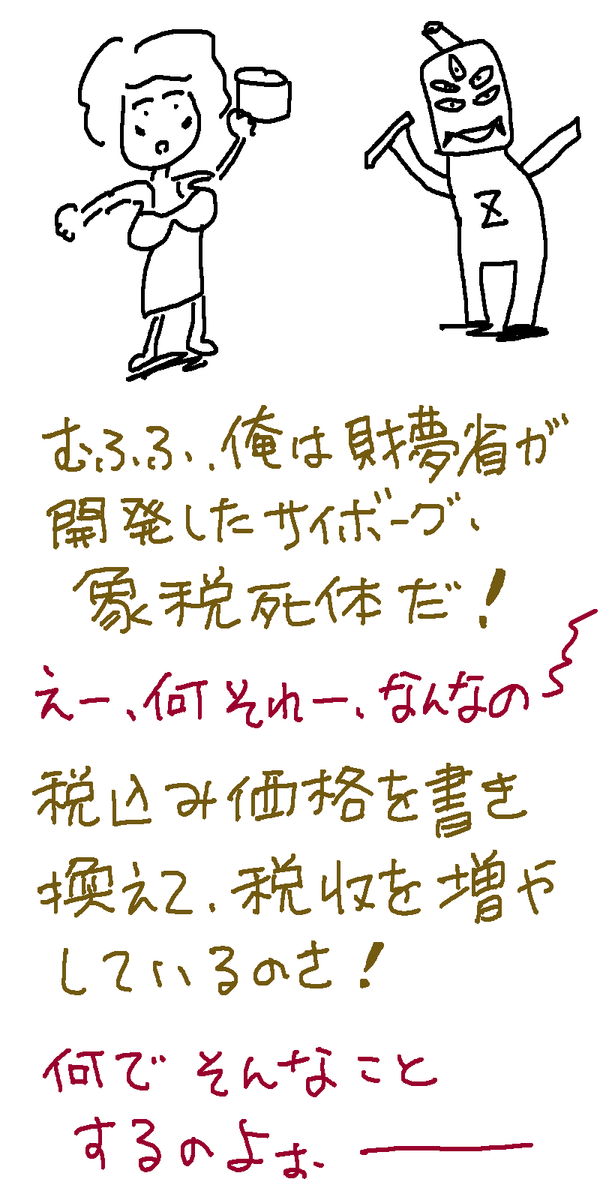 Z
むふふ、俺は財夢省が
開発したサイボーグ、
象税死体だ！
えー、何それー、なんなの
税込み価格を書き
換えて、税収を増や
しているのさ！
何でそんなこと
するのよぉ、――